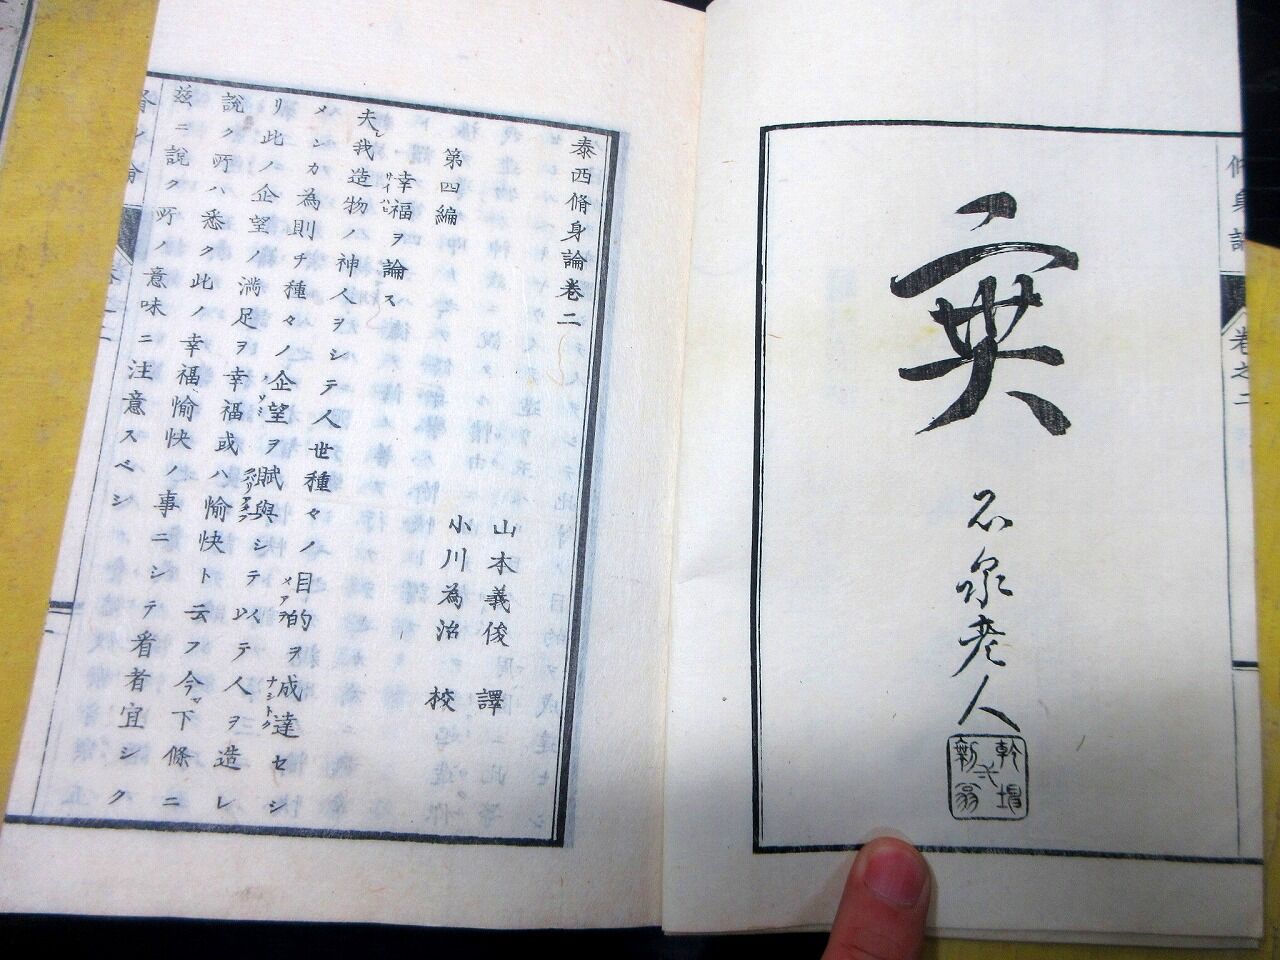 脩身論
卷之二
實
石泉老人
泰西脩身論卷二
山本義俊 譯
小川為治 校
第四編
幸福ヲ論ス
サイハヒ
夫レ我造物ノ神人ヲシテ人世種々ノ目的ヲ成達セシ
メアテ
ナシトク
メンカ為則チ種々ノ企望ヲ賦與シテ以テ人ヲ造レ
ノゾミ
リ此ノ企望ノ満足ヲ幸福或ハ愉快ト云フ今マ下條ニ
說ク所ハ悉ク此ノ幸福愉快ノ事ニシテ看者宜シク
茲ニ說ク所ノ意味ニ注意スベシ